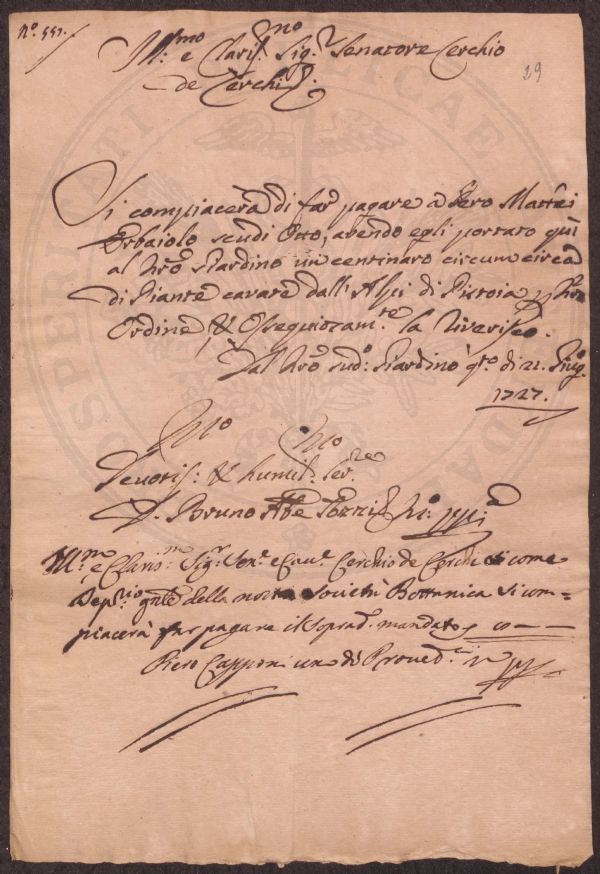 N.º 551.
Ill:mo e Claris:mo Sig:r Senatore Cerchio
de Cerchi
29
Si compiacerà di far pagare a Piero Mattei
Erbaiolo scudi Otto, avendo egli portato quì
al Nrõ Giardino un centinaro circum circa
di Piante cavate dall'Alpi di Pistoia p
Ordine, & Ossequiozam:te la riverisco.
Dal Nrõ sud:o Giardino q:to dì 21. Giug:
1727.
Devotis: & humil: ser:re
D. Bruno Abe Tozzi
Ill:m e Claris:m Sig:r Sen:e e Cau:r Cerchio de Cerchi si come
Dep:rio gnle della nostra Società Bottanica si com=
piacerà far pagare il soprad: mandato
Piero Capponi uno di Proued:i